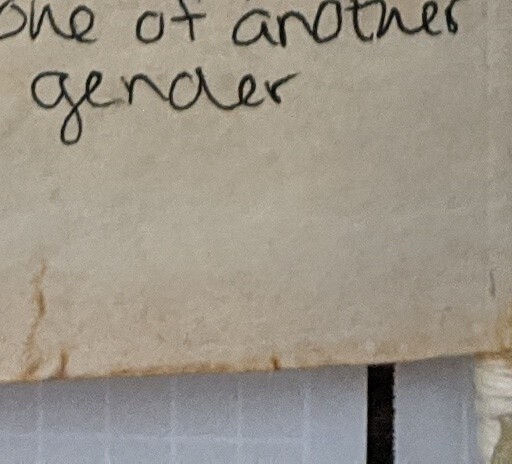 one of another
gender